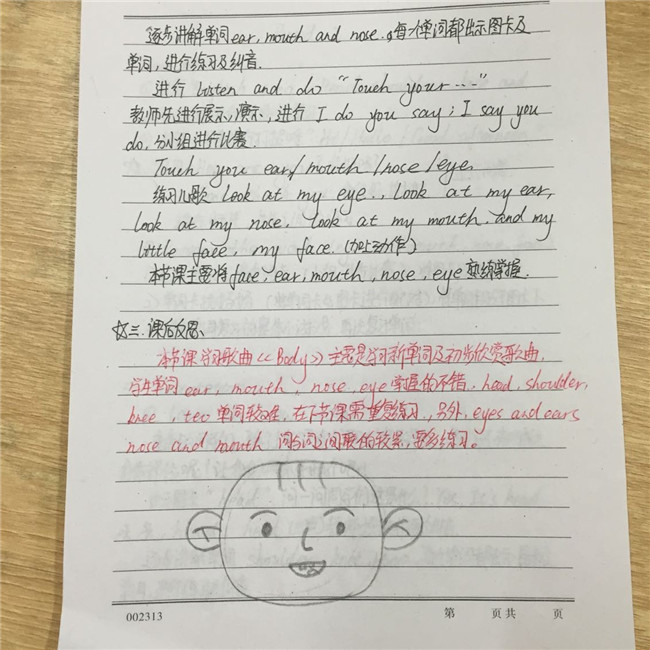 逐步讲解单词ear, mouth and nose.。每个单词都出示图卡及
单词,进行练习及纠音.
进行 Listen and do "Touch your ……"
教师先进行展示,演示,进行 I do you say; I say you
do, 分小组进行比赛.
Touch you ear/mouth /nose /eye.
练习儿歌 look at my eye., Look at my ear,
look at my nose, look at my mouth. and my
little face, my face. (加上动作)
本节课主要将face, ear, mouth, nose, eye 熟练掌握.
三.课后反思、
本节课学习歌曲《Body》主要是学习新单词及初步欣赏歌曲,
学生单词 ear, mouth, nose, eye掌握的不错. head, shoulder,
knee, teo 单词较难. 在下节课需重复练习, 另外, eyes and ears
nose and mouth 词与词之间 的 , 要多练习。
002313 第 页 共 页